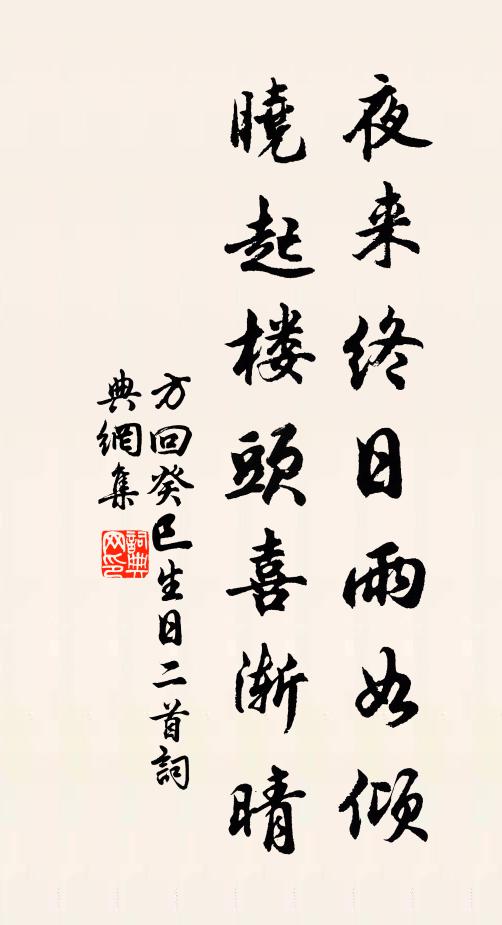 夜来终日雨如倾
曉起楼頭喜渐晴
方回癸巳生日二首詞
典網集
詞典网印